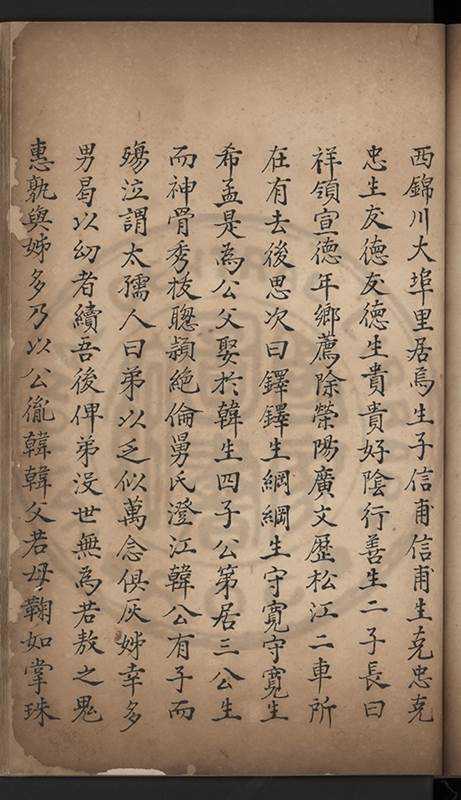 西錦川大埠里居焉生子信甫信甫生克忠克
忠生友德友德生貴貴好陰行善生二子長曰
祥領宣德年鄉薦除滎陽廣文歷松江二車所
在有去後思次曰鐸鐸生綱綱生守寬守寬生
希孟是為公父娶於韓生四子公第居三公生
而神骨秀枝聰潁絕倫舅氏澄江韓公有子而
殤泣謂太孺人曰弟以乏似萬念俱灰姊幸多
男曷以幼者續吾後俾弟沒世無為若敖之鬼
惠孰與姊多乃以公胤韓韓父若母鞠如掌珠